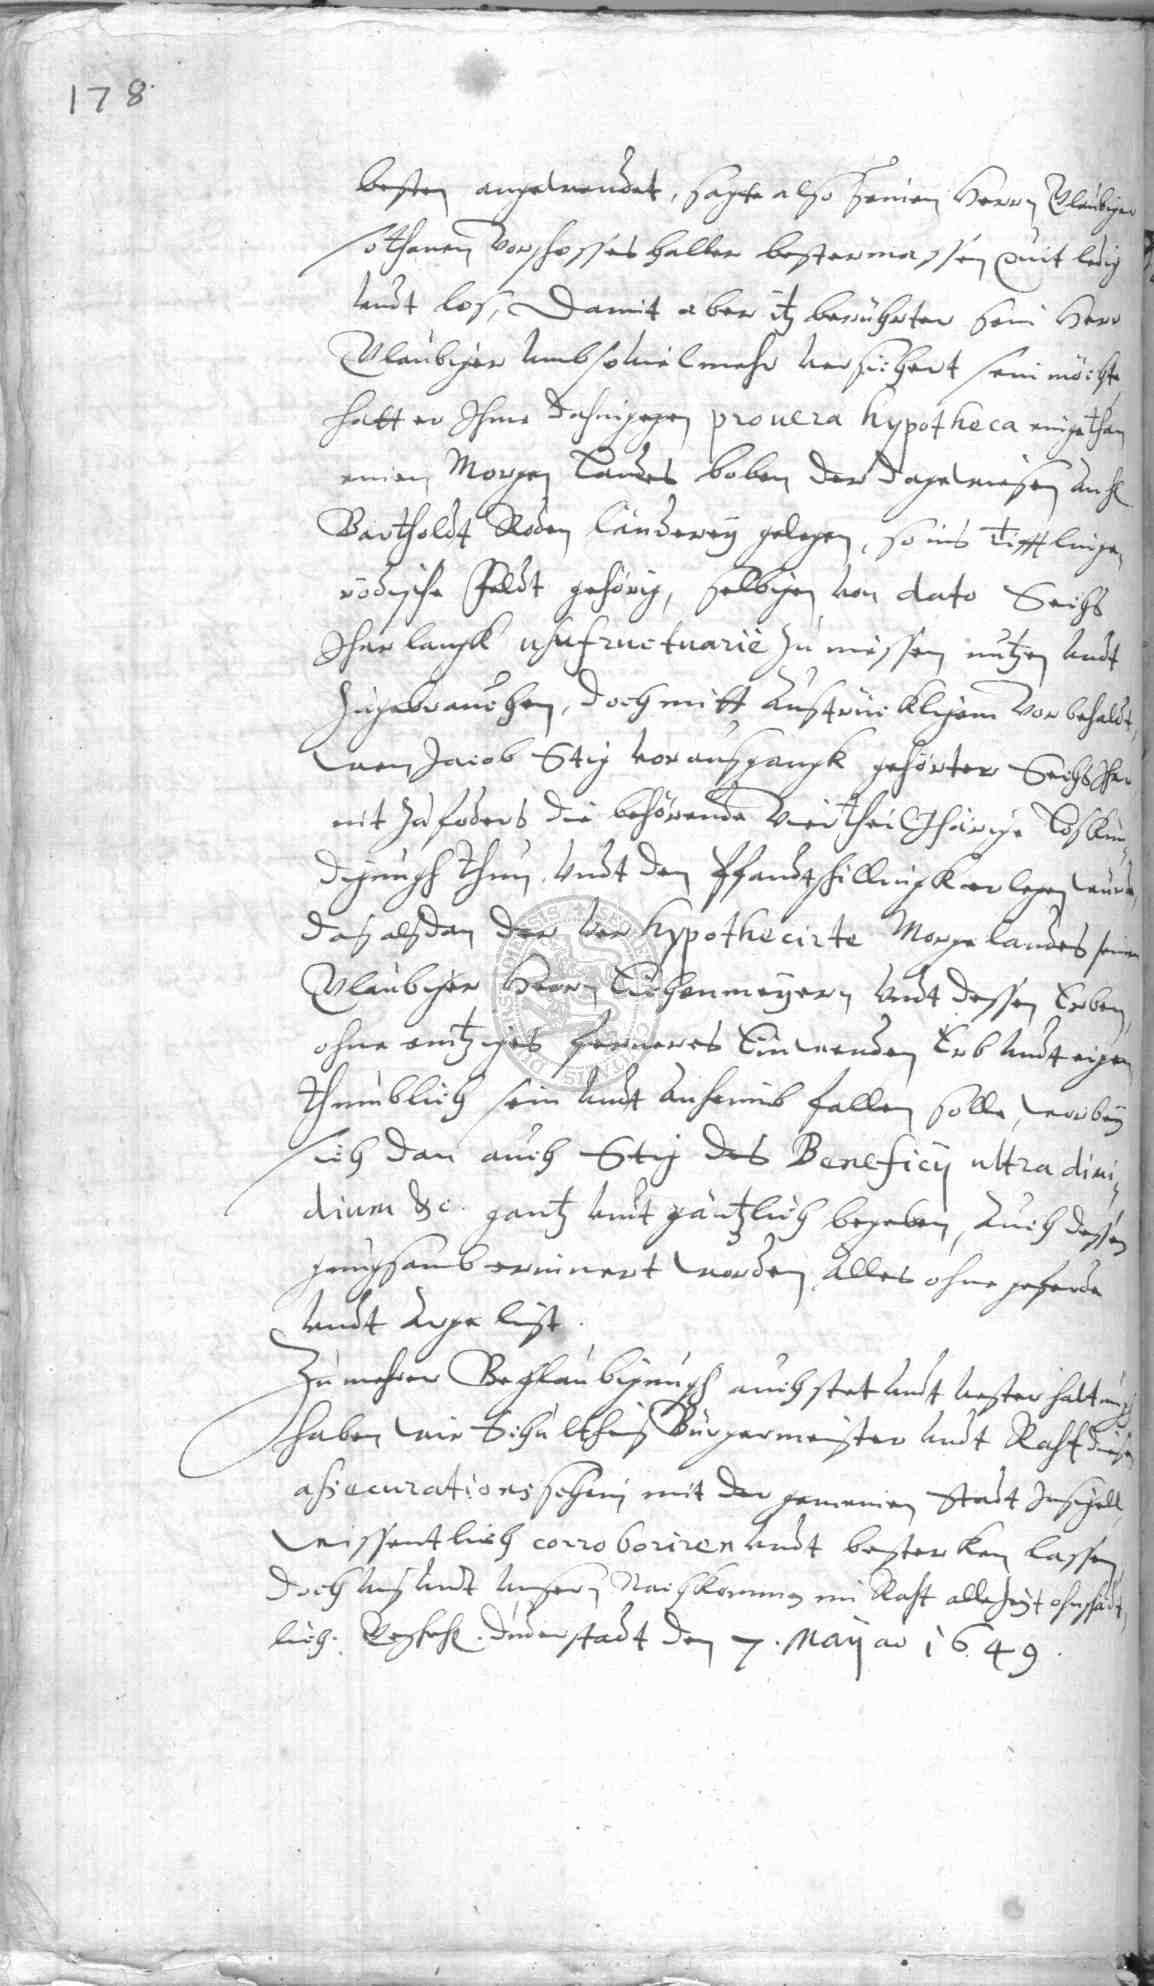 178
besten angewendet, sagte also seinen Herrn Glaubiger
sothanen Vorschosses halber bestermassen quit ledig
undt los, Damit aber itz berührter sein Herr
Glaubiger umb sovielmehr versichert sein möchte
hatt er Ihme dahingegen pro vera hypotheca eingethan
einen Morgen Landes boben der dagewiesen auf
Bartholdt Roden länderey gelegen, so ins Tifftlinge
rödische Feldt gehörig, selbigen von dato Sechs
Jhar langk usufructuarië zu niessen nutzen undt
zugebrauchen, doch mitt Austrücklichem Vorbehaldt,
wen Jacob Sty vor ausgangk gehörter Sechs Jhar
nit zufoders die behörende Viertheil Jhärige Loskün-
digungh thun, undt den Pfandtschillingk erlegen würde,
das alsdan der ver hypothecirte Morge landes seinem
Glaubiger Herrn Kuchenmeyern undt dessen Erben,
ohne eintziges ferneres Einwenden Erb undt eigen
thumblich sein undt anheimb fallen solle, worbey
sich dan auch Sty des Beneficij ultra dimi-
dium &c. gantz undt gäntzlich begeben, Auch dessen
gnugsamb erinnert worden, Alles ohne geferde
undt Argelist.
Zu mehrer Beglaubigungh auch stet undt vester haltungh
haben wir Schultheis Bürgermeister undt Raht diesen
assecurations schein mit der gemeinen Stadt Insigell
wissentlich corroboriren undt bestercken lassen,
doch uns undt unsern Nachkommen im Raht alle Zeyt ohnschädt-
lich. Geschehen Duderstadt den 7. Maij ao 1649.